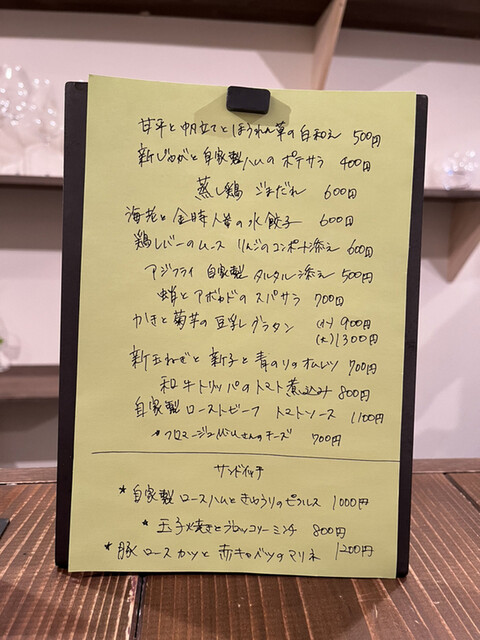 甘平と帆立てとほうれん草の白和え 500円
新じゃがと自家製ハムのポテサラ 400円
蒸し鶏 ごまだれ 600円
海老と金時人参の水餃子 600円
鶏レバーのムース リンゴのコンポート添え 600円
アジフライ 自家製タルタル添え 500円
蛸とアボカドのスパサラ 700円
かきと菊芋の豆乳グラタン (小) 900円
(大) 1300円
新玉ねぎと新子と青のりのオムレツ 700円
和牛トリッパのトマト煮込み 800円
自家製ローストビーフ トマトソース 1100円
フロマージュ さんのチーズ 700円
サンドイッチ
★自家製ロースハムときゅうりのピクルス 1000円
★玉子焼きとブロッコリーミンチ 800円
★豚ロースカツと赤キャベツのマリネ 1200円